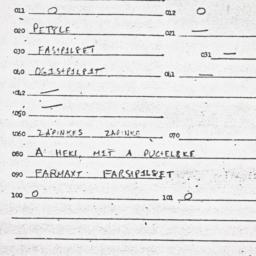 011 O 012 O
020 PETELE 021 —
030 FASIPILEET 031 —
040 041 —
042 —
050
060 ZAPINKES ZAPINKE 070
080 A HEKL MIT A
090 FARMAXT FARSIPILEET
100 O 101 O